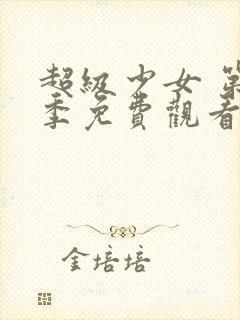 超級少女 第
季免費觀看
金培培